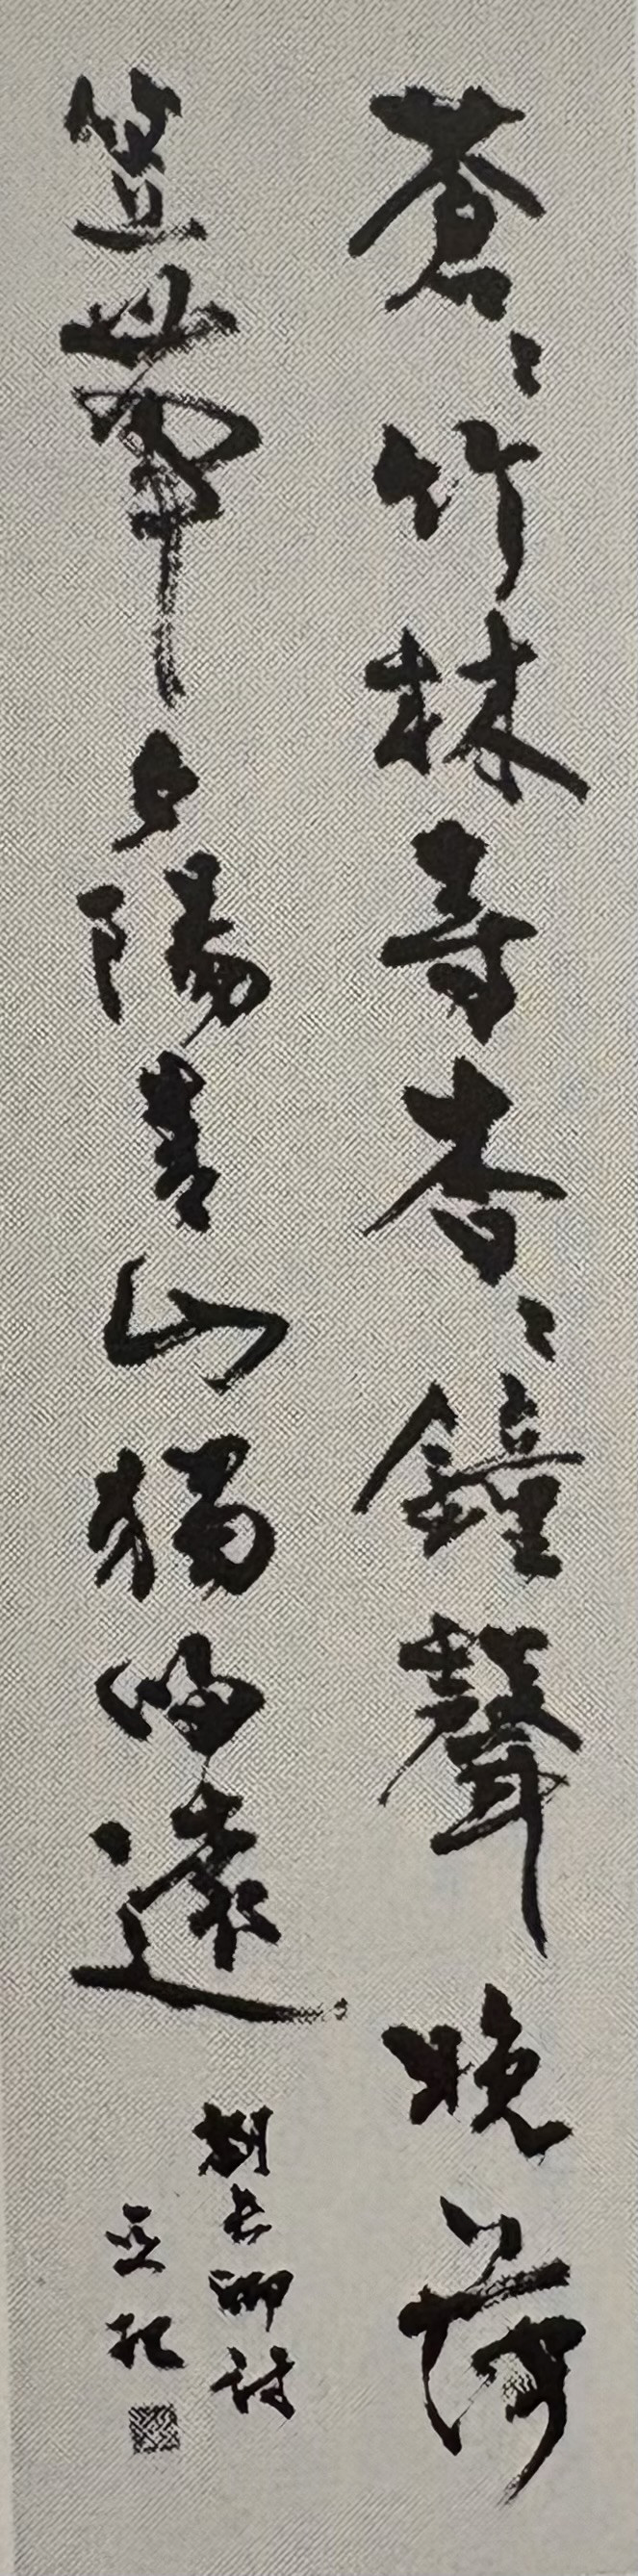 蒼々竹林寺杳々鐘聲晚荷
笠帶夕陽青山獨歸遠
劉長卿詩